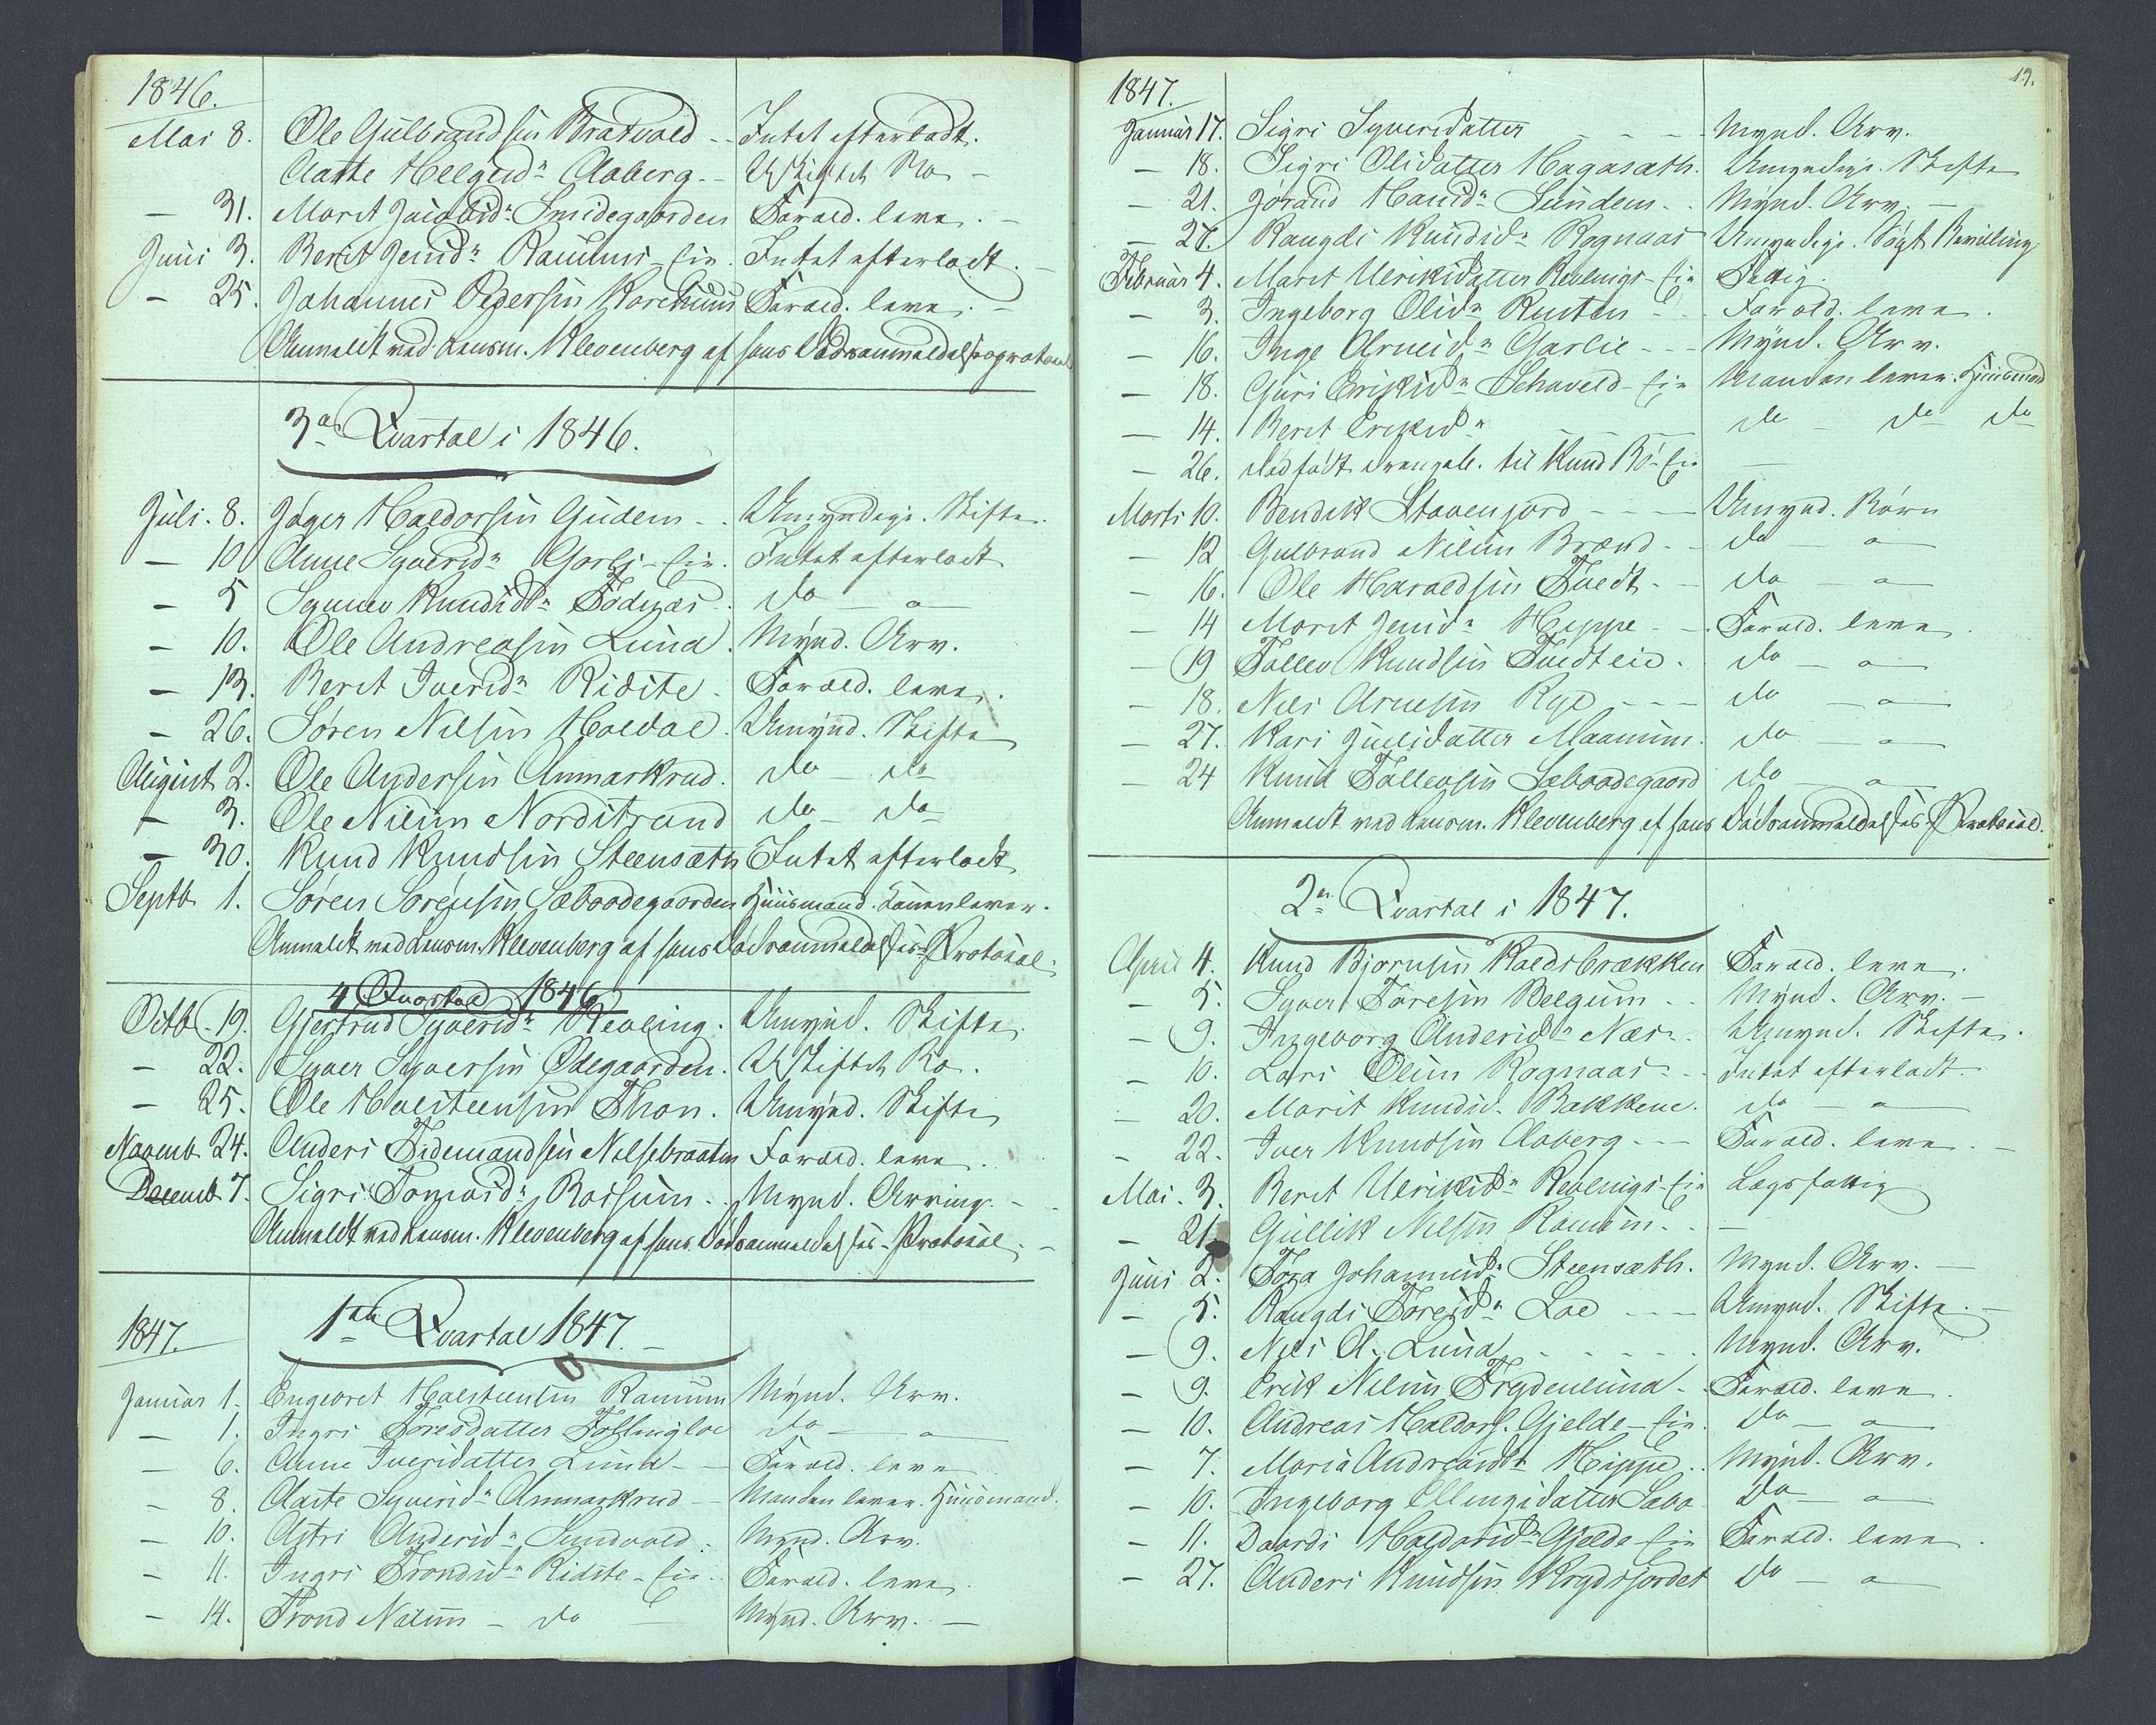 1846.
Mai 8. Ole Gulbrandsen Bratvold -- Intet efterladt.
Aaste Helgesdr Aaberg - Uskiftet Bo -
— 31. Marit Jacobsdr Smidegaarden Foræld. leve. -
Juni 3. Berit Jensdr Ramums-Eie. Intet efterladt. -
— 25. Johannes Pedersen Foræld. leve. -
Anmeldt ved Lensm. Klevenberg af hans Dødsanmeldelsesprotocol
3die Qvartal i 1846.
Juli. 8. Haldorsen Gudem - - Umyndige. Skifte.
— 10 Anne Syversdr Garli-Eie. Intet efterladt
— 5 Synnev Knudsdr Fodnæs. do — " —
— 10. Ole Andreasen Lund. Mynd. Arv.
— 13. Berit Iversdr Ridste - Foræld. leve.
— 26. Søren Nilsen Haldal. Umynd. Skifte
August 2. Ole Andersen Anmarkrud. do — do
— 3. Ole Nilsen Nordstrand do — do
— 30. Knud Knudsen Steensæth Intet efterladt
Septb. 1. Søren Sørensen Sæboadegaarden Huusmand. Konen lever.
Anmeldt ved Lensm. Klevenberg af hans Dødsanmeldelses-Protocol.
4 Quartal 1846
Octb. 19. Gjertrud Syversdr Revling. Umynd. Skifte.
— 22. Syver Syversen Ødegaarden. Uskiftet Bo.
— 25. Ole Halsteensen Thon. Umynd. Skifte
Novemb. 24. Anders Tidemandsen Nilsebraaten Foræld. leve.
Decemb 7. Sigri Bossum. - Mynd. Arving. -
Anmeldt ved Lensm. Klevenberg af hans Dødsanmeldelses-Protocol. -
1847. 1ste Qvartal 1847. —
Januar 1. Engebret Halsteensen Ramum Mynd. Arv.
— 1. Ingri Toresdatter Follingloe do — " —
— 6. Anne Iversdatter Lund - - Foræld. leve
— 8. Aaste Syversdr Anmarkrud - Manden lever. Huusmand.
— 10. Astri Andersdr Sundvold. Mynd. Arv.
— 11. Ingri Trondsdr Ridste-Eie. Foræld. leve.
— 14. Trond Nilsen - do — Mynd. Arv. —
19.
1847.
Januar 17. Sigri Syversdatter - - - - Mynd. Arv.
— 18. Sigri Olsdatter Hagasæth. Umyndige. Skifte
— 21. Jørand Hansdr Sundem - - Mynd. Arv. —
— 27. Rangdi Knudsdr Rognaas Umyndige. Søgt Bevilling
Februar 4. Marit Ulriksdatter Revlings-Eie Fattig.
— 3. Ingeborg Olsdr Rusten - - Foræld. leve.
— 16. Inge Arnesdr Garlie - - - Mynd. Arv.
— 18. Guri Eriksdr Schaveld-Eie Manden lever. Huusmand
— 14. Berit Eriksdr - - - - do — do do
— 26. dødfødt drengeb. til Knud Bø-Eie —
Marts 10. Bendik Stavenjord - - - Umynd. Børn
— 12 Gulbrand Nilsen Brænd - - do — " —
— 16. Ole Haraldsen Tuedt - - do — " —
— 14 Marit Jensdr Hippe - - Foræld. leve.
— 19 Tollev Knudsen Tuedteie. do — " —
— 18. Nils Arnesen Rye - - - do — " —
— 27. Kari Juulsdatter Maanum. do — " —
— 24 Knud Tollevsen Sæboadegaard do — " —
Anmeldt ved Lensm. Klevenberg af hans Dødsanmeldelses-Protocol.
2en Qvartal i 1847.
April 4. Knud Bjørnsen Kaldsbrækken Foræld. leve.
— 5. Syver Toresen Belgum - - Mynd. Arv. —
— 9. Ingeborg Andersdr Næs - Umynd. Skifte.
— 10. Lars Olsen Rognaas - - Intet efterladt. —
— 20. Marit Knudsd. Bakkene. do — " —
— 22. Iver Knudsen Aaberg - - - Foræld. leve. —
Mai. 3. Berit Ulriksdr Revlings-Eie Lægsfattig
— 21. Gullik Nilsen Ramum. - —
Juni 2. Tora Johannesdr Steensæth. Mynd. Arv. —
— 5. Rangdi Toresdr Loe - - - Umynd. Skifte. —
— 9. Nils A. Lund - - - - - Mynd. Arv.
— 9. Erik Nilsen Frydenlund - Foræld. leve.
— 10. Andreas Haldors. Gjelde-Eie. do — " —
— 7. Maria Andreasdr Hippe. - Mynd. Arv.
— 10. Ingeborg Ellingsdatter Sæbo do — " —
— 11. Daardi Haldorsdr Gjelde-Eie Foræld. leve.
— 27. Anders Knudsen Krydsjordet do — " —